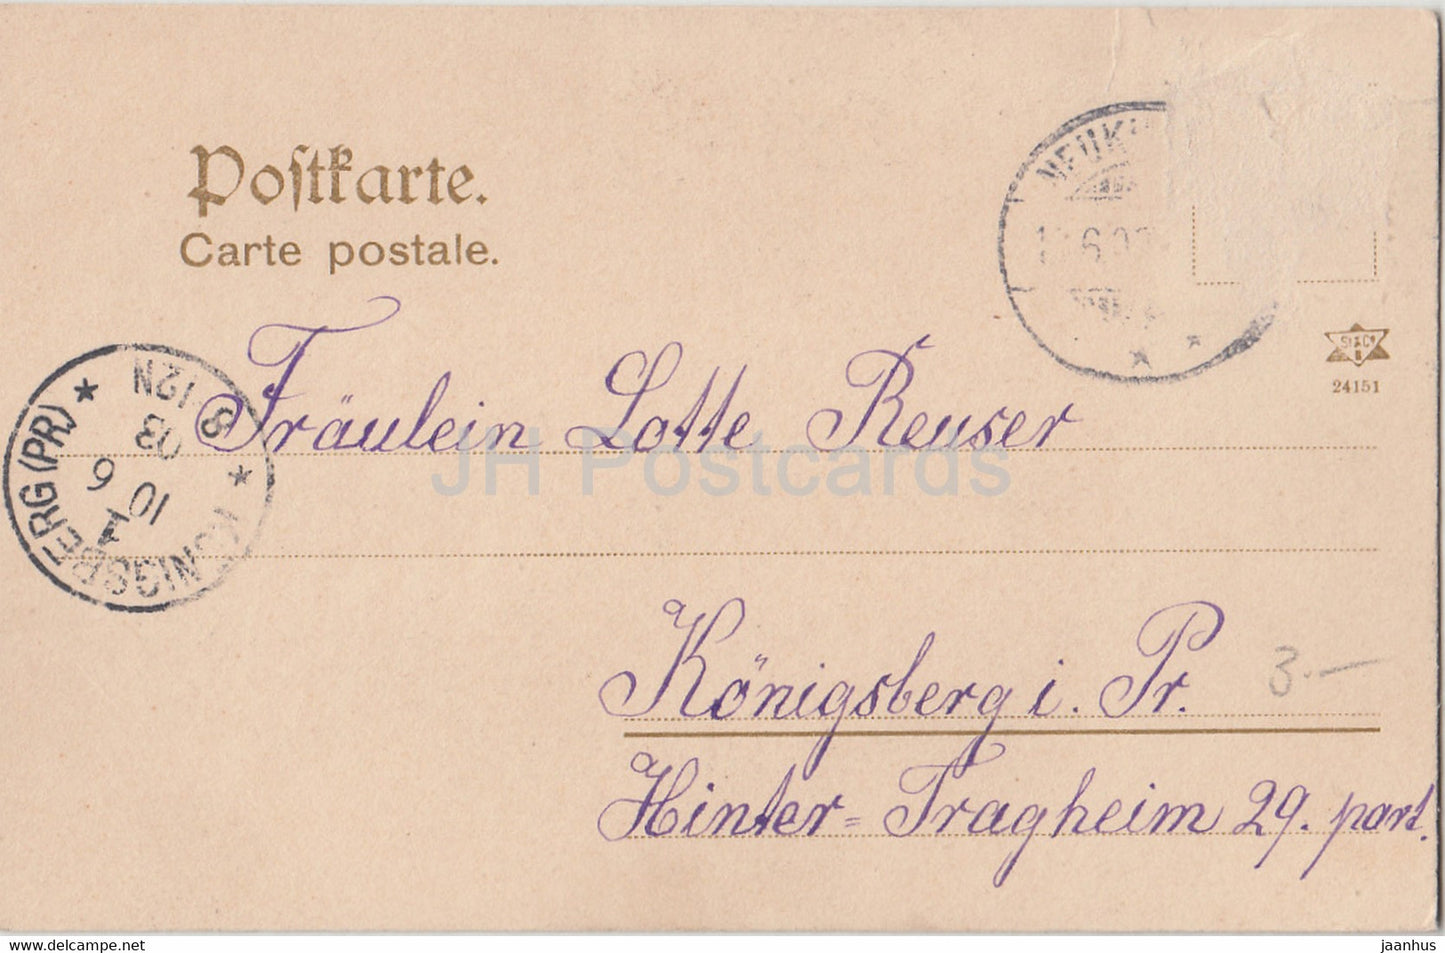 Postkarte.
Carte postale.
NEUK
6.0
St&Co
24151
KÖNIGSBERG (PR)
10 6
03
8-12N
1
Fräulein Lotte Reuser
JH Postcards
Königsberg i. Pr.
3.—
Hinter=Tragheim 29. part.
www.delcampe.net
jaanhus